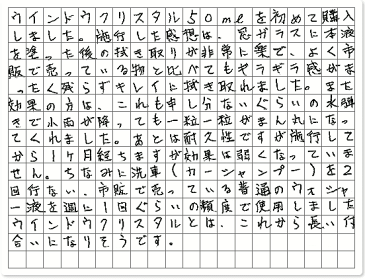 ウインドウクリスタル50mlを初めて購入
しました。施行した感想は、窓ガラスに本液
を塗った後の拭き取りが非常に楽で、よく市
販で売っている物と比べてもギラギラ感がま
ったく残らずキレイに拭き取れました。また
効果の方は、これも申し分ないぐらいの水弾
きで小雨が降っても一粒一粒がまん丸になっ
てくれました。あとは耐久性ですが施行して
から1ヶ月経ちますが効果は弱くなっていま
せん。ちなみに洗車(カーシャンプー)を2
回行ない、市販で売っている普通のウォシャ
ー液を週に1回ぐらいの頻度で使用しました
ウインドウクリスタルとは、これから長い付
合いになりそうです。